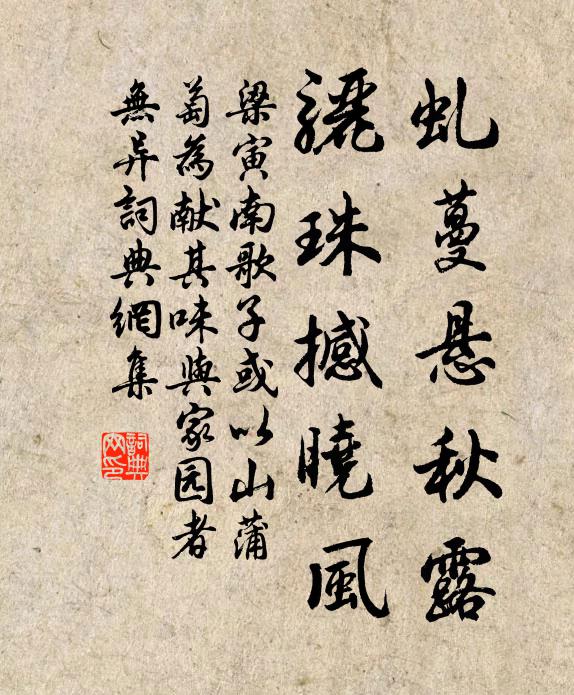 虬蔓悬秋露
骊珠撼曉風
梁寅南歌子或以山蒲
萄為献其味與家园者
無异詞典網集
詞典網印